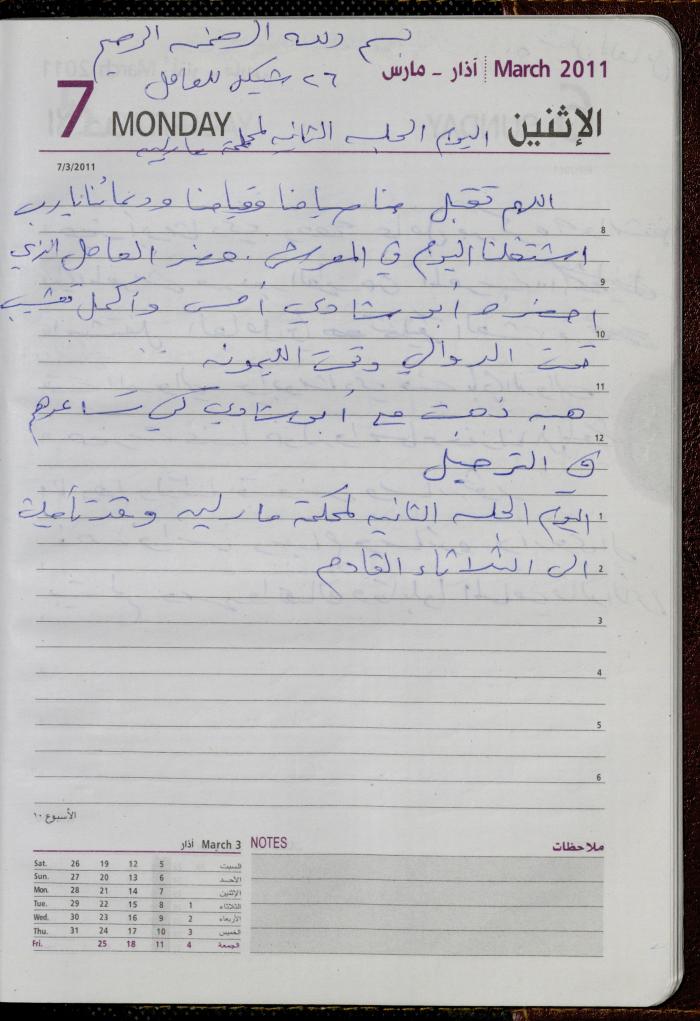 بسم الله الرحمن الرحيم
March 2011 آذار - مارس
٢٦ شيكل للعامل
7 MONDAY الإثنين
اليوم الجلسه الثانيه لمحكمة مارليه
7/3/2011
اللهم تقبل منا صيامنا وقيامنا ودعائنا يا رب
8
اشتغلنا اليوم في المعرش . حضر العامل الذي
9
احضره أبو شادي أمس وأكمل تعشيب
10
تحت الدوالي وتحت الليمونه
11
هبه ذهبت مع أبو شادي كي تساعدهم
12
في الترحيل
اليوم الجلسه الثانيه لمحكمة مارليه وقد تأجلت
1
الى الثلاثاء القادم
2
3
4
5
6
الأسبوع ١٠
March 3 آذار
Sat. 26 19 12 5 السبت
Sun. 27 20 13 6 الأحد
Mon. 28 21 14 7 الإثنين
Tue. 29 22 15 8 1 الثلاثاء
Wed. 30 23 16 9 2 الأربعاء
Thu. 31 24 17 10 3 الخميس
Fri. 25 18 11 4 الجمعة
NOTES ملاحظات